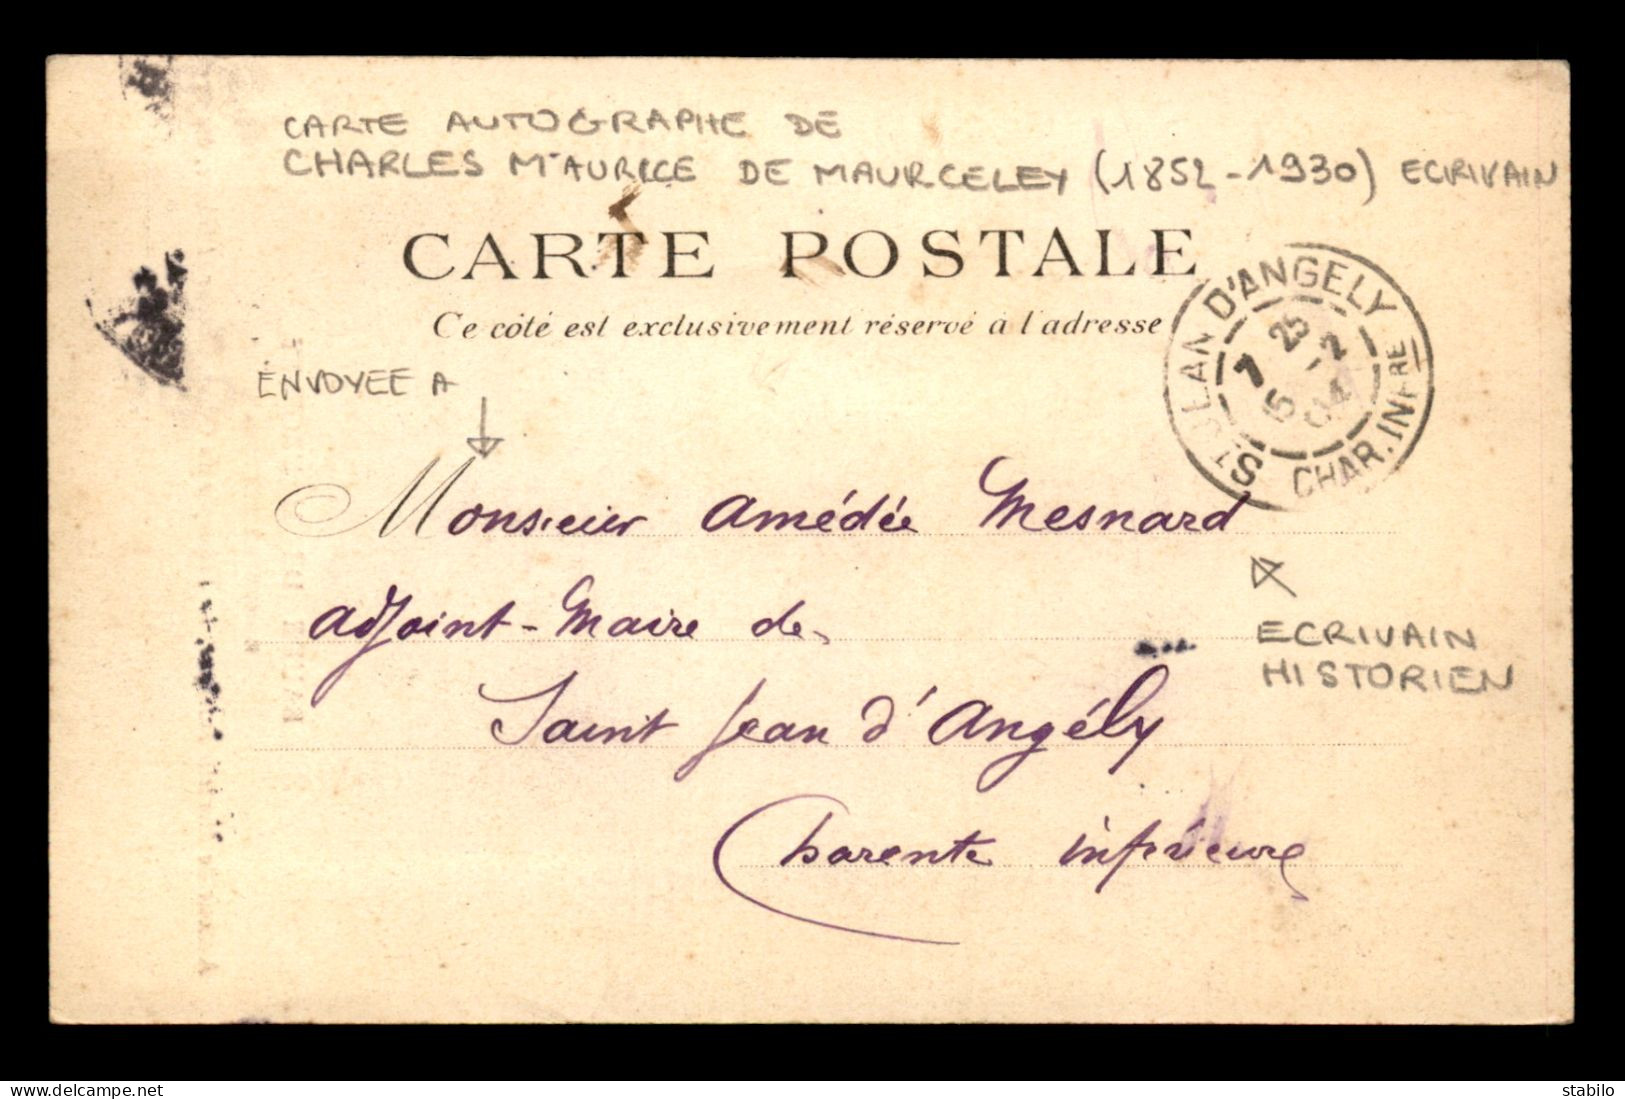 CARTE AUTOGRAPHE DE
CHARLES MAURICE DE MAURCELEY (1852-1930) ECRIVAIN
CARTE POSTALE
Ce côté est exclusivement réservé à l'adresse
ST JEAN D'ANGELY
7 25
5 -2
04
CHAR. INFRE
ENVOYEE A
Monsieur Amédée Mesnard
adjoint-Maire de
ECRIVAIN
HISTORIEN
Saint Jean d'Angély
Charente inférieure
delcampe.net
stabilo